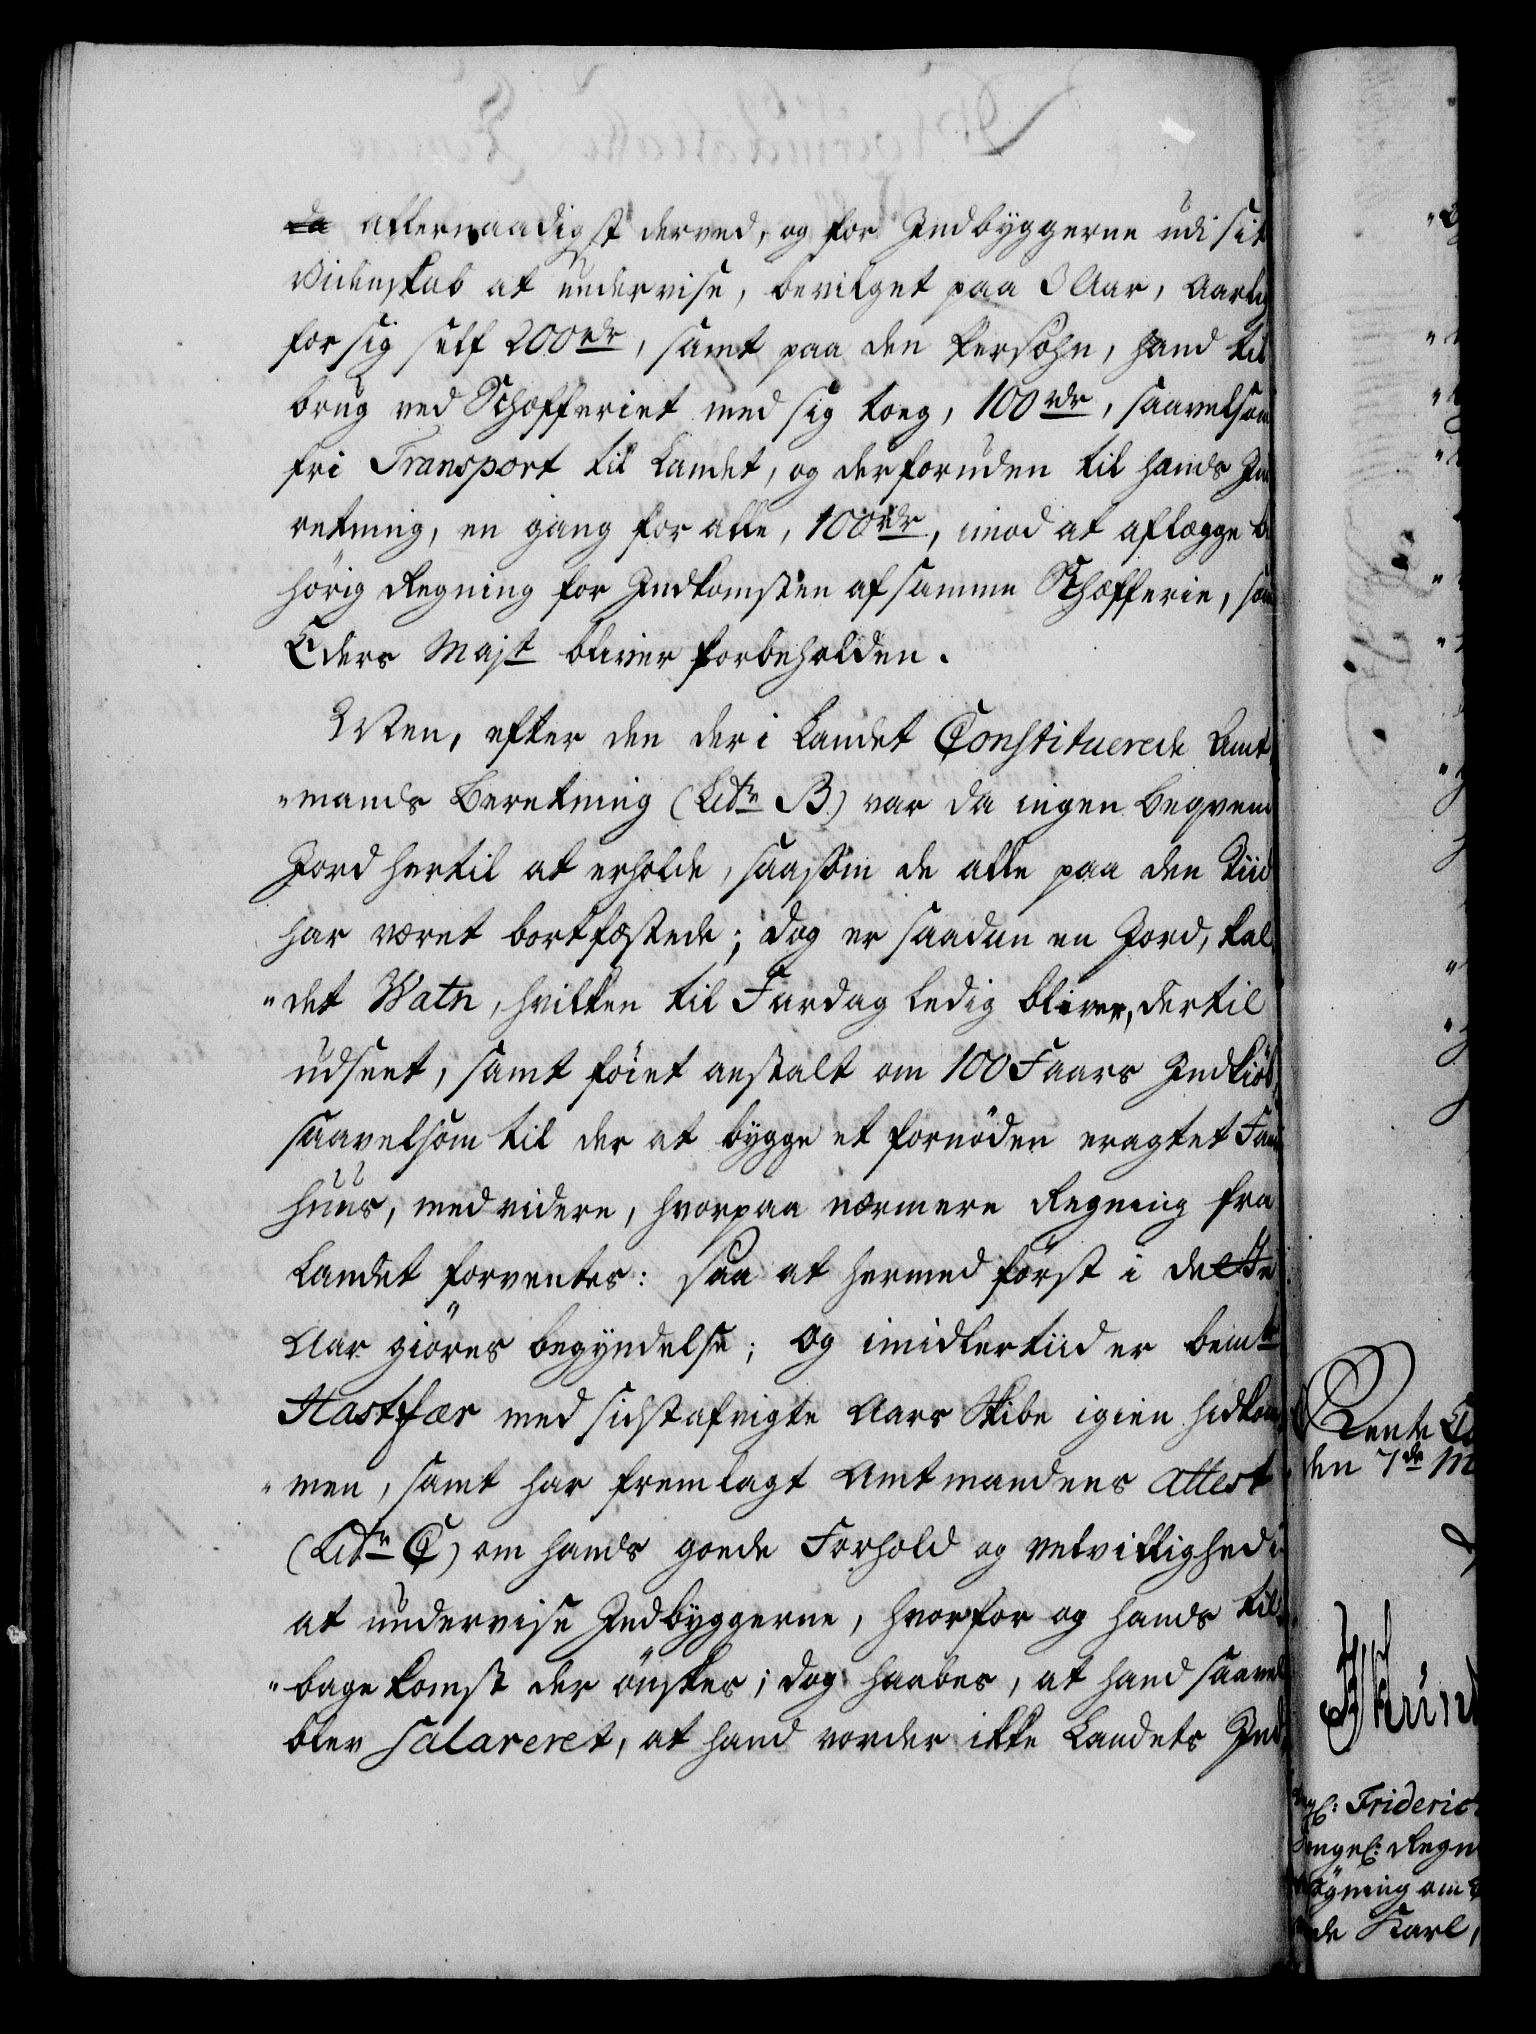 da allernaadigst derved, og for Indbyggerne udi sit
Videnskab at undervise, bevilget paa 3 Aar, Aarlig
for sig self 200 rdr, samt paa den Persohn, hand til
brug ved Schæfferiet med sig toeg, 100 rdr, saavelsom
fri Transport til Landet, og derforuden til hands Ind
retning, en gang for alle, 100 rdr, imod at aflægge be
hörig Regning for Indkomsten af samme Schæfferie, som
Eders Majt bliver forbeholden.
Men, efter den der i Landet Constituerede Amt
"mands Beretning (Litr B.) var da ingen beqvem
Jord hertil at erholde, saasom de alle paa den Tiid
har været bortfæstede; dog er saadan en Jord, kal
"det Watn, hvilken til Fardag ledig bliver, dertil
udseet, samt föiet anstalt om 100 Faars Indkiöb,
saavelsom til der at bygge et fornöden eragtet Faare
huus, med videre, hvorpaa nærmere Regning fra
Landet forventes: saa at hermed först i dette
Aar giöres begyndelse; og imidlertiid er bemte
Hastfær med sidstafvigte Aars Skibe igien hidkom
"men, samt har fremlagt Amtmandens Attest
(Litr C) om hands goede Forhold og velvillighed i
at undervise Indbyggerne, hvorfor og hands til
"bagekomst der önskes; dog haabes, at hand saavel
blev Salareret, at hand vorder ikke Landets Ind
Rente Ca
den 7de M
Friderich
Regn
om
de Karl,